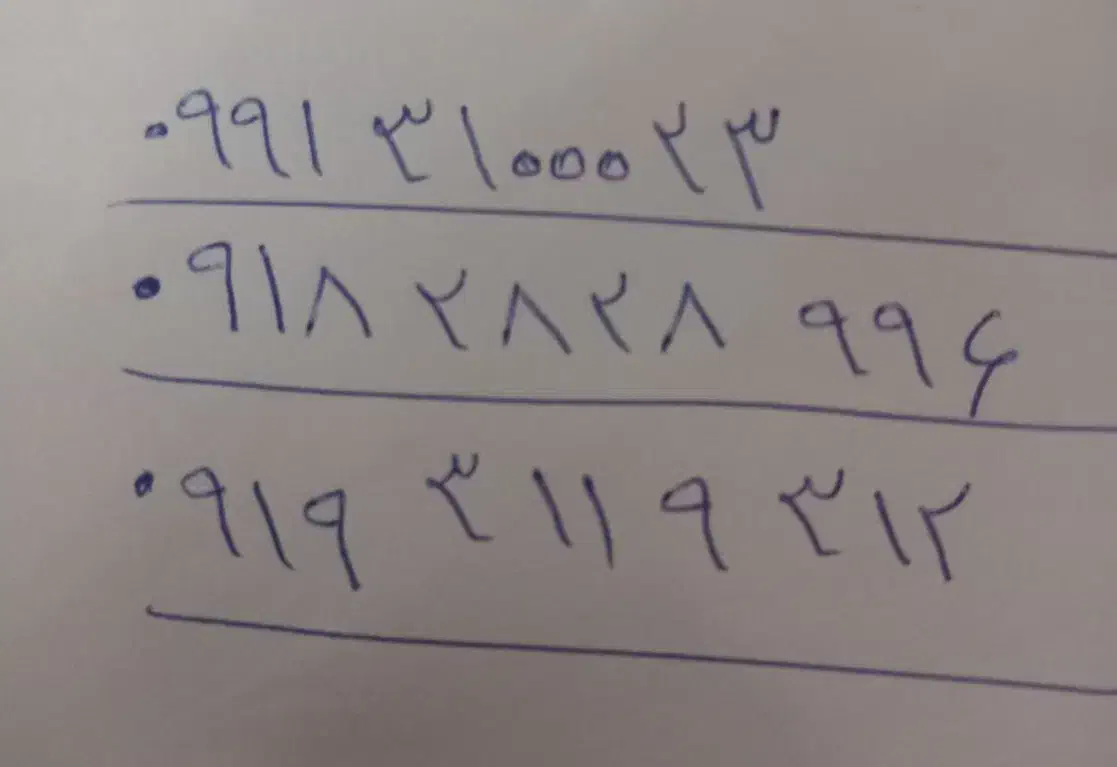 ۰۹۹۱ ۳۱۰۰۰ ۲۳
۰۹۱۸ ۲۸۲۸ ۹۹۶
۰۹۱۹ ۳۱۱۹ ۳۱۲